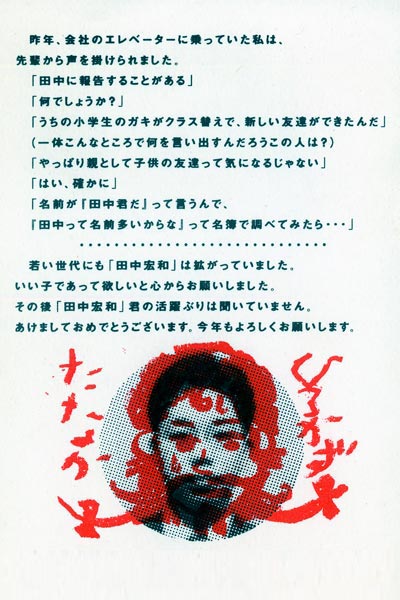 昨年、会社のエレベーターに乗っていた私は、
先輩から声を掛けられました。
「田中に報告することがある」
「何でしょうか?」
「うちの小学生のガキがクラス替えで、新しい友達ができたんだ」
(一体こんなところで何を言い出すんだろうこの人は?)
「やっぱり親として子供の友達って気になるじゃない」
「はい、確かに」
「名前が『田中君だ』って言うんで、
『田中って名前多いからな』って名簿で調べてみたら・・・」
・・・・・・・・・・・・・・・・・・・・・・・・・・・・・
若い世代にも「田中宏和」は拡がっていました。
いい子であって欲しいと心からお願いしました。
その後「田中宏和」君の活躍ぶりは聞いていません。
あけましておめでとうございます。今年もよろしくお願いします。